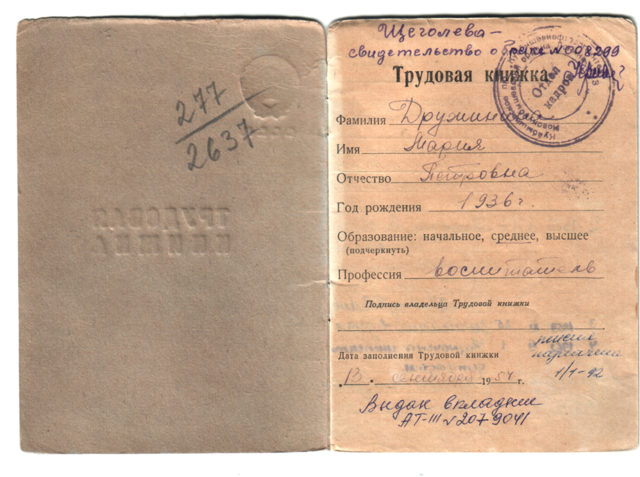 277
2637
Щеголева –
свидетельство о браке № 008299
Трудовая книжка
Отдел
кадров
Фамилия Дружинина
Имя Мария
Отчество Петровна
Год рождения 1936 г.
Образование: начальное, среднее, высшее
(подчеркнуть)
Профессия воспитатель
Подпись владельца Трудовой книжки
Дата заполнения Трудовой книжки
13 . сентября 1954 г.
пенсия
назначена
1/1-92
Выдан вкладыш
АТ-III № 2079041
ТРУДОВАЯ
КНИЖКА